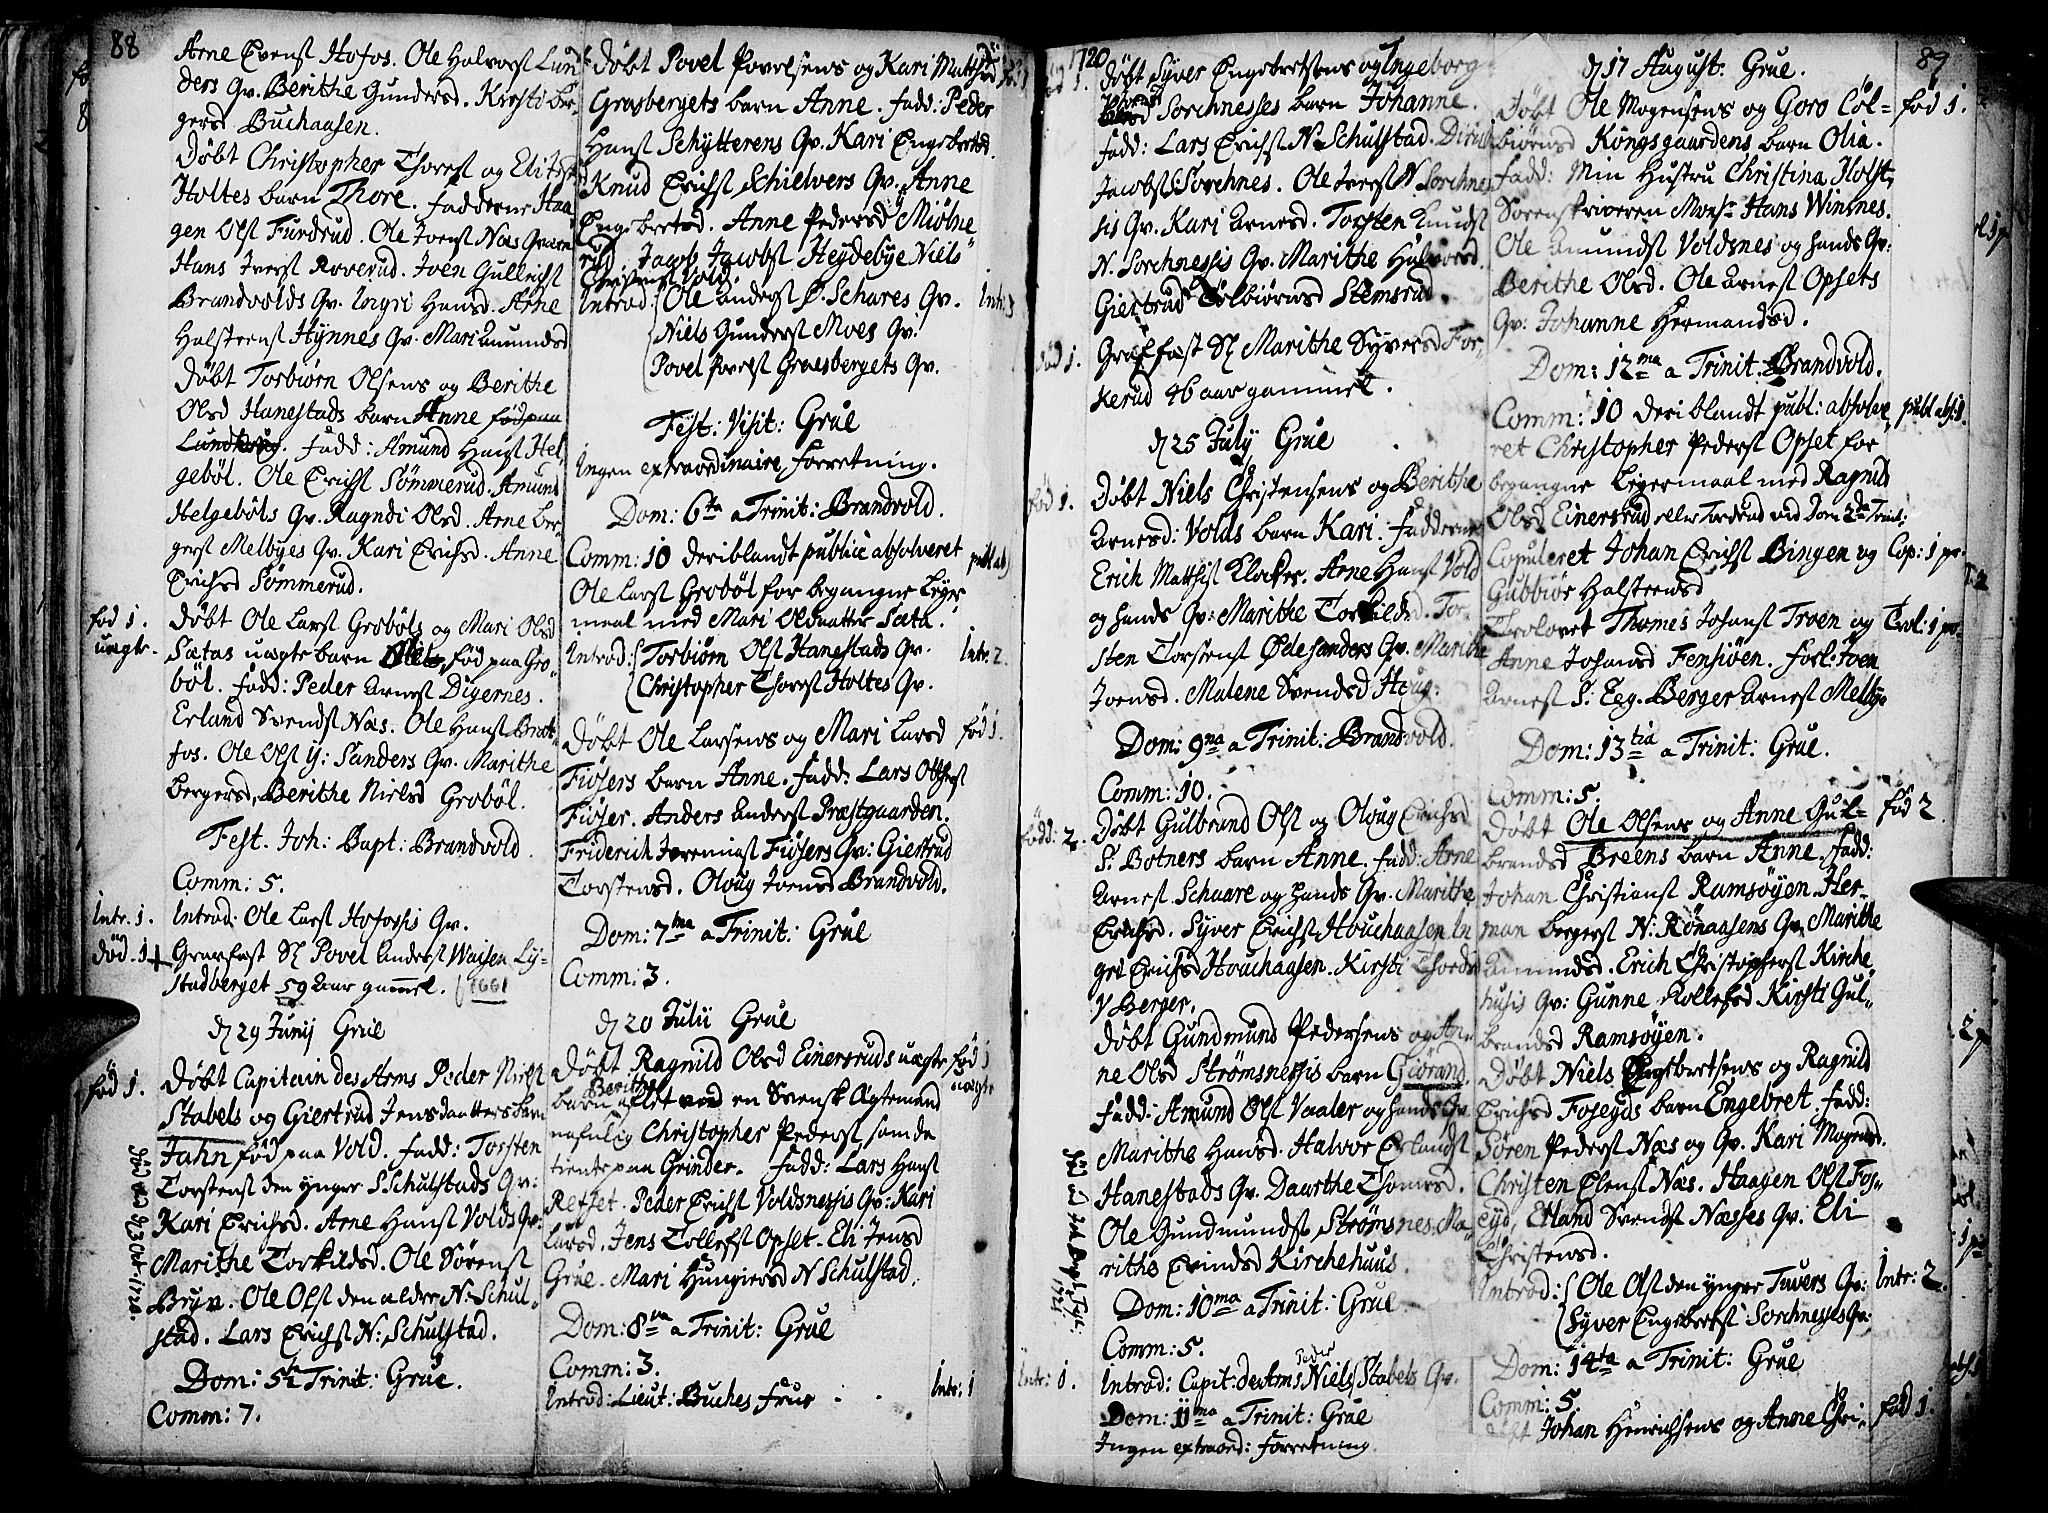 88
Arne Evenst Hofos. Ole Halvorst Lun
ders Qv. Berithe Gundersd. Kirsti Ber-
gersd Buchaasen.
Døbt Christopher Thorest og
Holtes barn Thore. Fadderne Haa
gen Olst Furdrud. Ole Joenst Næs
Hans Iverst Roverud. Joen Gulleichst
Brandvolds Qv. Ingri Hansd. Arne
Halsteenst Hynnes Qv. Mari Amundsd
Døbt Torbiørn Olsens og Berithe
Olsd Hanestads barn Anne
Fadd: Amund Hanst Hel-
gebøl. Ole Erichst Sømmerud. Amund
Helgebøls Qv. Ragndi Olsd. Arne Ber-
gerst Melbyes Qv. Kari Erichsd. Anne
Erichsd Sømmerud.
fød 1.
uægte.
Døbt Ole Larst Grobøls og Mari Olsd
Sætas uægte barn fød paa Gro-
bøl. Fadd: Peder Arnest Digernes.
Erland Svendst Næs. Ole Hanst Brat-
fos. Ole Olst y: Sanders Qv. Marithe
Bergersd, Berithe Nielsd Grobøl.
Fest. Joh: Bapt: Brandvold.
Comm: 5.
Intr. 1.
Introd: Ole Larst Hofossis Qv.
død. 1
Gravfæst Sl Povel Anderst Waisen Ly-
stadberget 59 Aar gammel. 1661
d 29 Junij Grue
fød 1.
Døbt Capitain des Arms Peder Nielst
Stabels og Giertrud Jensdaatters barn
Jahn fød paa Vold. Fadd: Torsten
Torstenst den ynger S Schulstads Qv:
Kari Erichsd. Arne Hanst Volds Qv:
Marithe Torkildsd. Ole Sørenst
Bryn. Ole Olst den aldre N. Schul-
stad. Lars Erichst N: Schulstad.
Dom: 5ta Trinit: Grue.
Comm: 7.
Døbt Povel Povelsens og Kari Matthisd
Grasbergets barn Anne. Fadd: Peder
Hanst Schytterens Qv. Kari Engebretsd.
Knud Erichst Schielvers Qv. Anne
Engebretsd. Anne Pedersd Miøbne
rud Jacob Jacobst Heydebye Niels
Christenst Vold.
Introd: Ole Anderst Ø. Schares Qv. Intr. 3
Niels Gunderst Moes Qv:
Povel Povelst Grasbergets Qv.
Fest: Visit: Grue
Ingen extraordinaire forretning.
Dom: 6ta a Trinit: Brandvold.
Comm: 10 deriblandt publicè absolveret
publ abs
Ole Larst Grobøl for begangne Leyer
maal med Mari Olsdaatter Sæta.
Introd: Torbiørn Olst Hanestads Qv. Intr: 2.
Christopher Thorest Holtes Qv.
Døbt Ole Larsens og Mari Larsd fød 1.
Fiøsers barn Anne. Fadd: Lars
Fiøser. Anders Anderst Præstgaarden.
Friderich Jeremiast Fiøsers Qv: Giertrud
Torstensd. Oloug Joensd Brandvold.
Dom: 7ma a Trinit: Grue
Comm: 3.
d 20 Julii Grue
Døbt Ragnild Olsd Einersruds uægte fød 1
uægte
Berithe
barn aflet med en Svensk Ægtemand
nafnlig Christopher Pederst som de
tiente paa Grinder. Fadd: Lars Hanst
Reffet. Peder Erichst Voldsnessis Qv: Kari
Larsd. Jens Tollefst Opset. Eli Jensd
Grue. Mari Hungiersd N Schulstad.
Dom: 8va a Trinit: Grue
Comm: 3.
Introd: Lieut: Buches Frue Intr: 1
1720
Døbt Syver Engebretsens og Ingeborg
Sorchnesses barn Johanne.
Fadd: Lars Erichst N. Schulstad.
Jacobst Sorchnes. Ole Iverst N Sorchnes
sis Qv. Kari Arnesd. Torsten Knudst
N. Sorchnessis Qv. Marithe Halvorsd.
Giertrud Tolbiørnsd Stemsrud.
død 1.
Grafæst Sl Marithe Syversd For-
kerud 46 aar gammel.
d 25 July Grue
fød 1.
Døbt Niels Christensens og Berithe
Arnesd: Volds barn Kari. Fadderne
Erich Matthist Klocker. Arne Hanst Vold
og hands Qv: Marithe Torkildsd. Tor-
sten Torstenst Ødesanders Qv. Marithe
Joensd. Malene Svendsd Houg.
Dom: 9na a Trinit: Brandvold.
Comm: 10.
fødd: 2.
Døbt Gulbrand Olst og Oloug Erichsd
S. Botners barn Anne. Fadd: Arne
Arnest Schaare og hands Qv. Marithe
Erichsd. Syver Erichst Houchaasen. In
gri Erichsd Houchaasen. Kirsti Thordsd
Berger.
Døbt Gundmund Pedersens og An-
ne Olsd Strømsnessis barn Giørand.
Fadd: Amund Olst Vaaler og hands Qv
Marithe Hansd. Halvor Erlandst
Hanestads Qv. Daarthe Thomesd.
Ole Gundmundst Strømsnes. Ma-
rithe Evindsd Kirchehuus.
Dom: 10ma a Trinit: Grue
Comm: 5.
Intr: 1.
Peder
Introd: Capit: des Arms Niels Stabels Qv.
Dom: 11ma a Trinit: Grue
Ingen extraord: forretning.
89
d 17 August: Grue.
Døbt Ole Mogensens og Goro Tol- fød 1.
biørnsd Kongsgaardens barn Olia.
Fadd: Min Hustru Christina Holst,
Sorenskriveren Monsr Hans Winsnes.
Ole Amundst Voldsnes og hands Qv:
Berithe Olsd. Ole Arnest Opsets
Qv: Johanne Hermandsd.
Dom: 12ma a Trinit. Brandvold.
Comm: 10 deriblandt publ: absolve publ abs: 1.
ret Christopher Pederst Opset for
begangne Leyermaal med Ragnild
Olsd Einersrud
Copuleret Johan Erichst Bingen og Cop: 1 pr.
Gubbiør Halsteensd
Trolovet Thomes Johanst Troen og Trol: 1 pr.
Anne Johansd Fensiøen. Forl: Joen
Arnest S. Eeg. Berger Arnest Melbye
Dom: 13tia a Trinit: Grue.
Comm: 5.
Døbt Ole Olsens og Anne Gul- fød 2.
brandsd Breens barn Anne. Fadd:
Johan Christianst Ramsøyen. Her-
man Bergerst N: Rønaasens Qv, Marithe
Amundsd. Erich Christopherst Kirche
husis Qv: Gunne Rollefsd Kirsti Gul-
brandsd Ramsøyen.
Døbt Niels Engebretsens og Ragnild
Erichsd Foseyds barn Engebret. Fadd:
Søren Pederst Næs og Qv. Kari Mogensd.
Christen Elenst Næs. Haagen Olst Fos-
eyd, Erland Svendst Næsses Qv: Eli
Christensd.
Introd: Ole Olst den ynger Tuvers Qv: Intr: 2.
Syver Engebretst Sorchnesses Qv.
Dom: 14ta a Trinit: Grue
Comm: 5.
Døbt Johan Henrichsens og Anne Chri- fød 1.